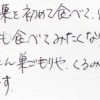 巣を初めて食べて、
も食べてみたくな
ん巣ごもりや、くるみ
す。